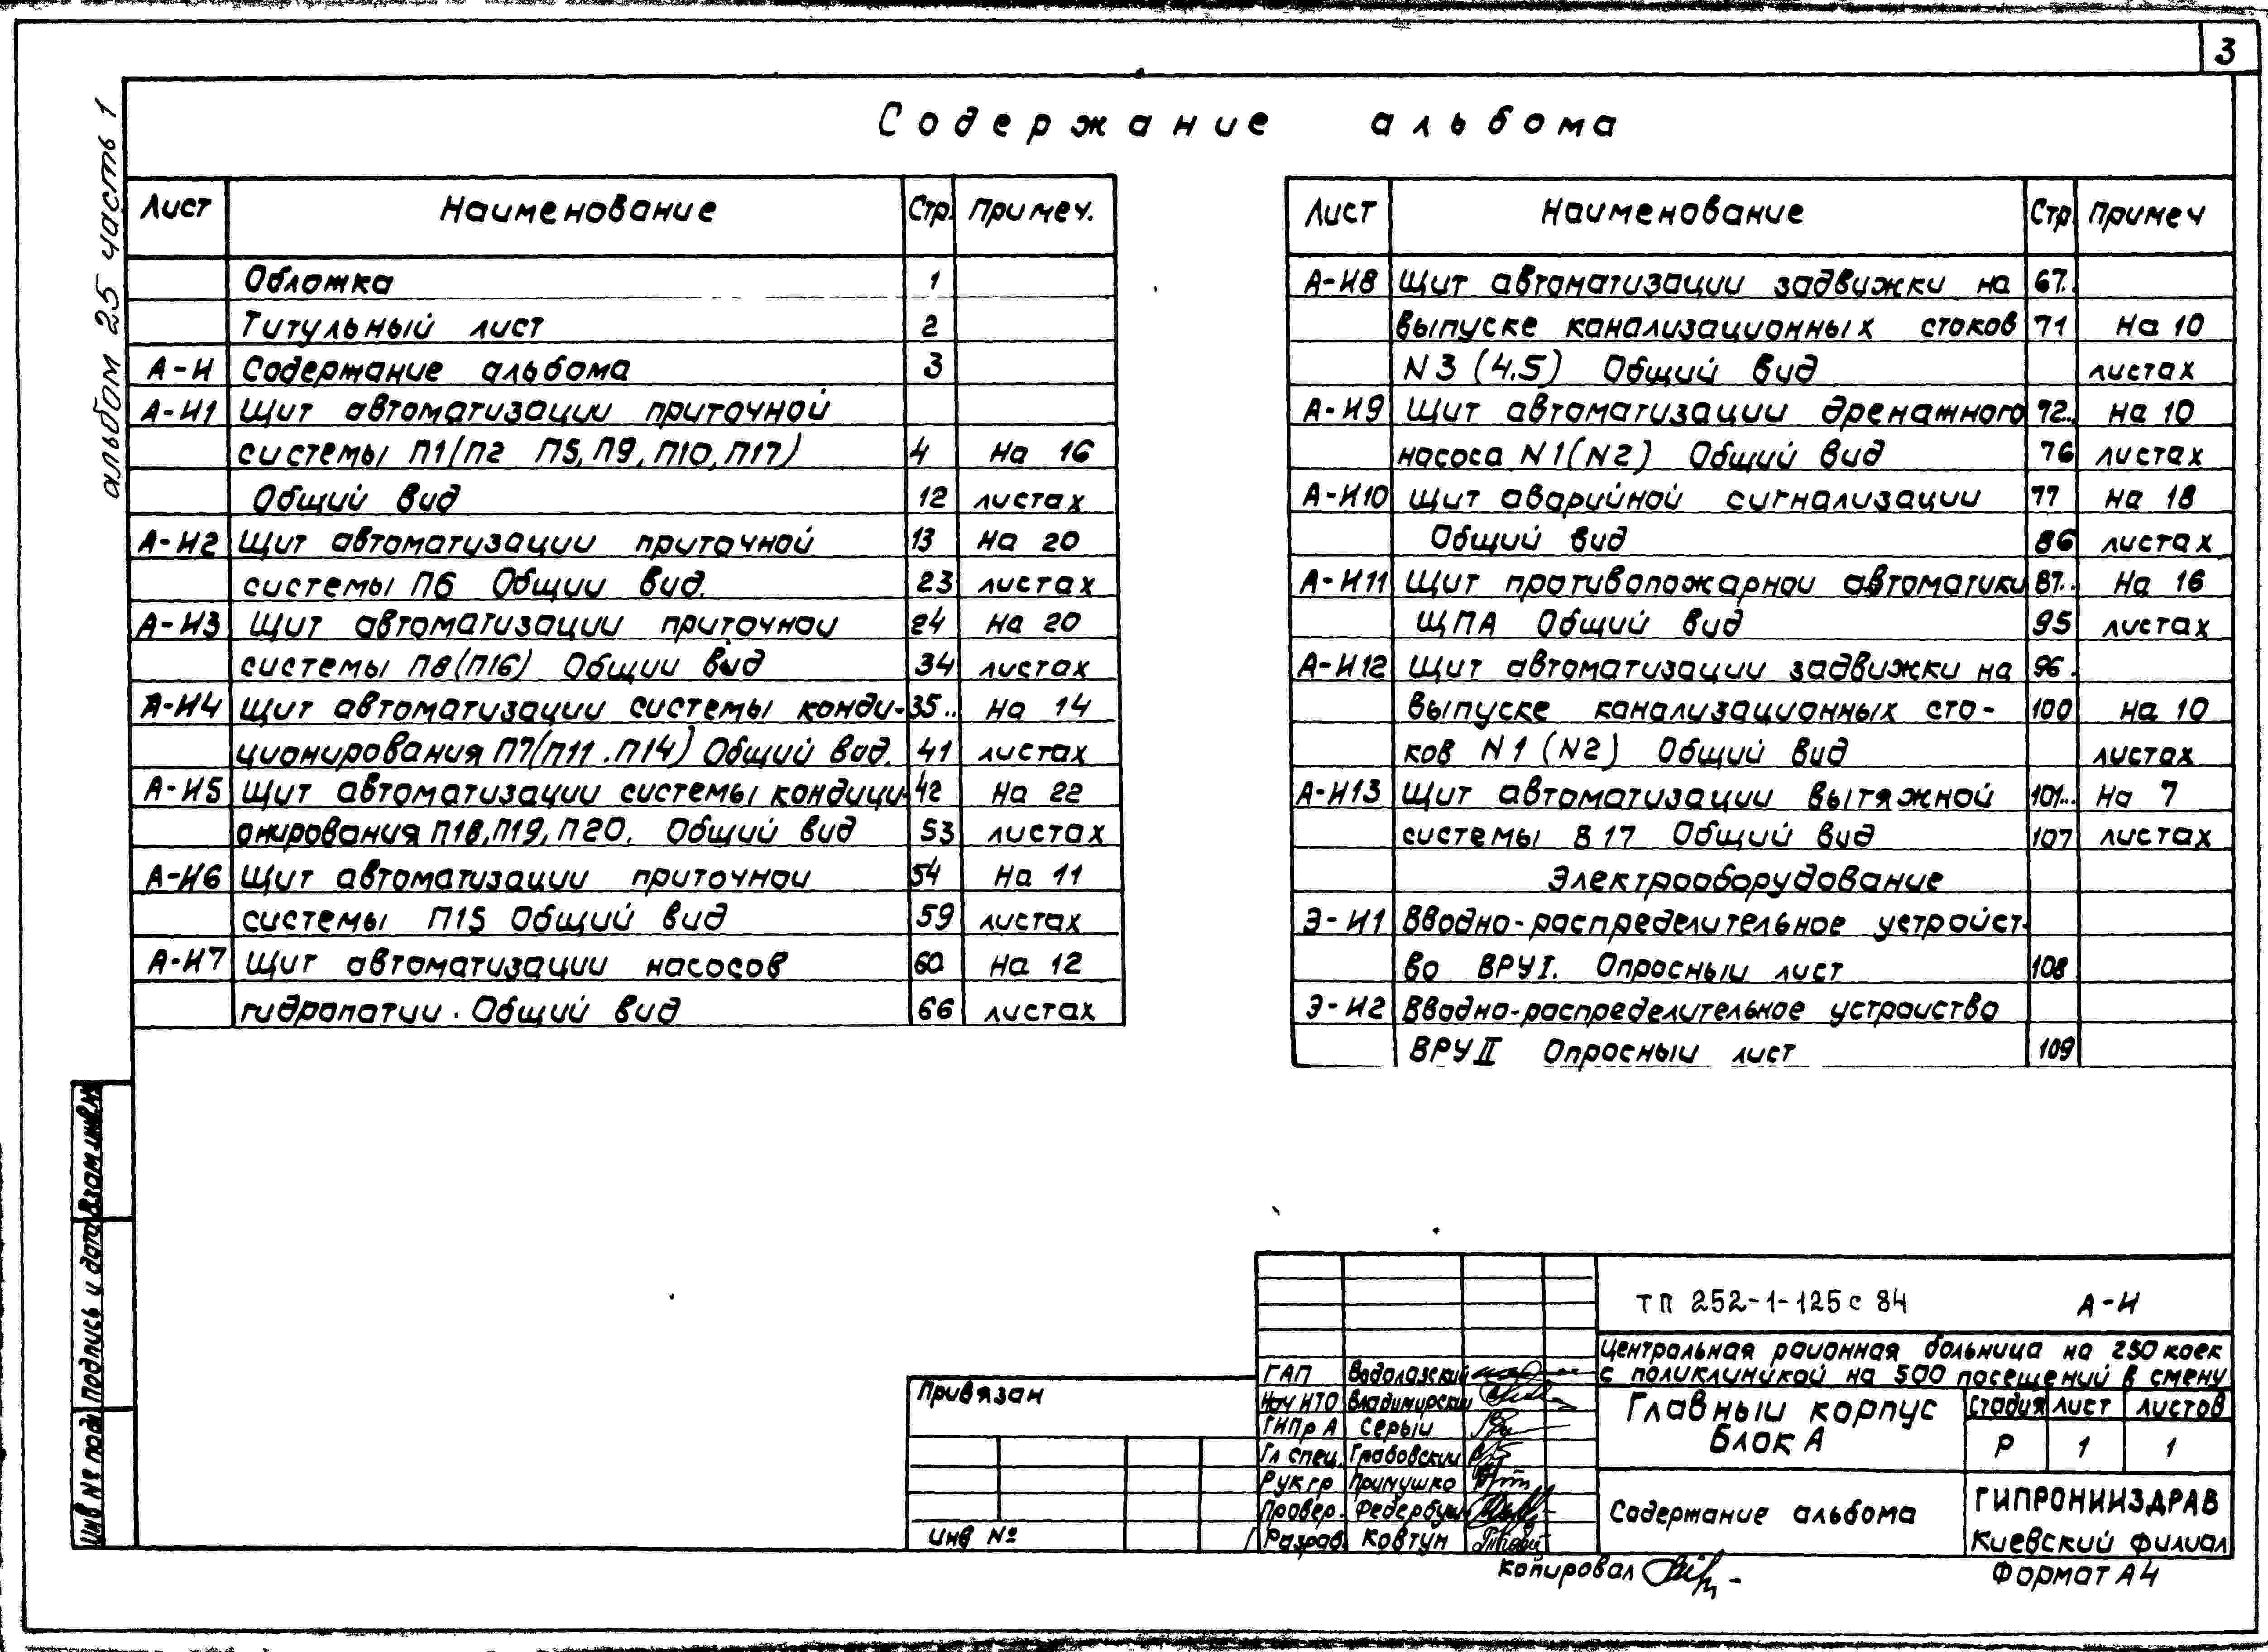 3
альбом 25 часть 1
Содержание альбома
Лист Наименование Стр. Примеч.
Обложка 1
Титульный лист 2
А-И Содержание альбома 3
А-И1 Щит автоматизации приточной
системы П1(П2 П5, П9, П10, П17) 4 На 16
Общий вид 12 листах
А-И2 Щит автоматизации приточной 13 На 20
системы П6 Общий вид. 23 листах
А-И3 Щит автоматизации приточной 24 На 20
системы П8(П16) Общий вид 34 листах
А-И4 Щит автоматизации системы конди- 35.. На 14
ционирования П7(П11. П14) Общий вид. 41 листах
А-И5 Щит автоматизации системы кондици- 42 На 22
онирования П18, П19, П20. Общий вид 53 листах
А-И6 Щит автоматизации приточной 54 На 11
системы П15 Общий вид 59 листах
А-И7 Щит автоматизации насосов 60 На 12
гидропатии. Общий вид 66 листах
Лист Наименование Стр. Примеч
А-И8 Щит автоматизации задвижки на 67..
выпуске канализационных стоков 71 На 10
N3 (4.5) Общий вид листах
А-И9 Щит автоматизации дренажного 72.. На 10
насоса N1(N2) Общий вид 76 листах
А-И10 Щит аварийной сигнализации 77 На 18
Общий вид 86 листах
А-И11 Щит противопожарной автоматики 87.. На 16
ЩПА Общий вид 95 листах
А-И12 Щит автоматизации задвижки на 96.
выпуске канализационных сто- 100 На 10
ков N1 (N2) Общий вид листах
А-И13 Щит автоматизации вытяжной 101... На 7
системы В17 Общий вид 107 листах
Электрооборудование
Э-И1 Вводно-распределительное устройст-
во ВРУI. Опросный лист 108
Э-И2 Вводно-распределительное устройство
ВРУII Опросный лист 109
Взам инв N
Подпись и дата
Инв № подл
Привязан
Инв №
ГАП Водолазский
Нач ИТО Владимирский
ГИПр А Серый
Гл спец. Грабовский
Рук гр Примушко
Провер. Федербуш
Разраб. Ковтун
ТП 252-1-125с 84 А-И
Центральная районная больница на 250 коек
с поликлиникой на 500 посещений в смену
Главный корпус
Блок А
Стадия Лист Листов
Р 1 1
Содержание альбома
ГИПРОНИИЗДРАВ
Киевский филиал
Копировал
Формат А4